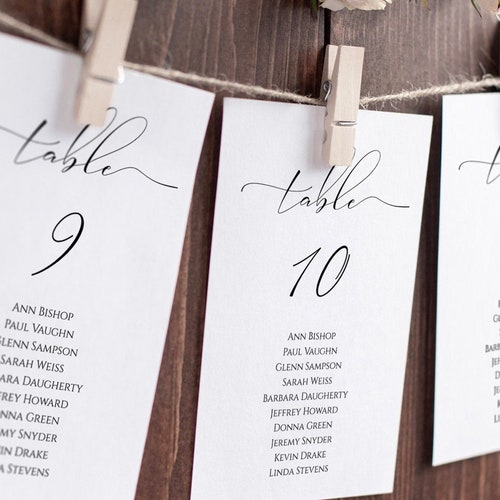 table
9
Ann Bishop
Paul Vaughn
Glenn Sampson
Sarah Weiss
Daugherty
Howard
Green
Snyder
Drake
Stevens
table
10
Ann Bishop
Paul Vaughn
Glenn Sampson
Sarah Weiss
Barbara Daugherty
Jeffrey Howard
Donna Green
Jeremy Snyder
Kevin Drake
Linda Stevens